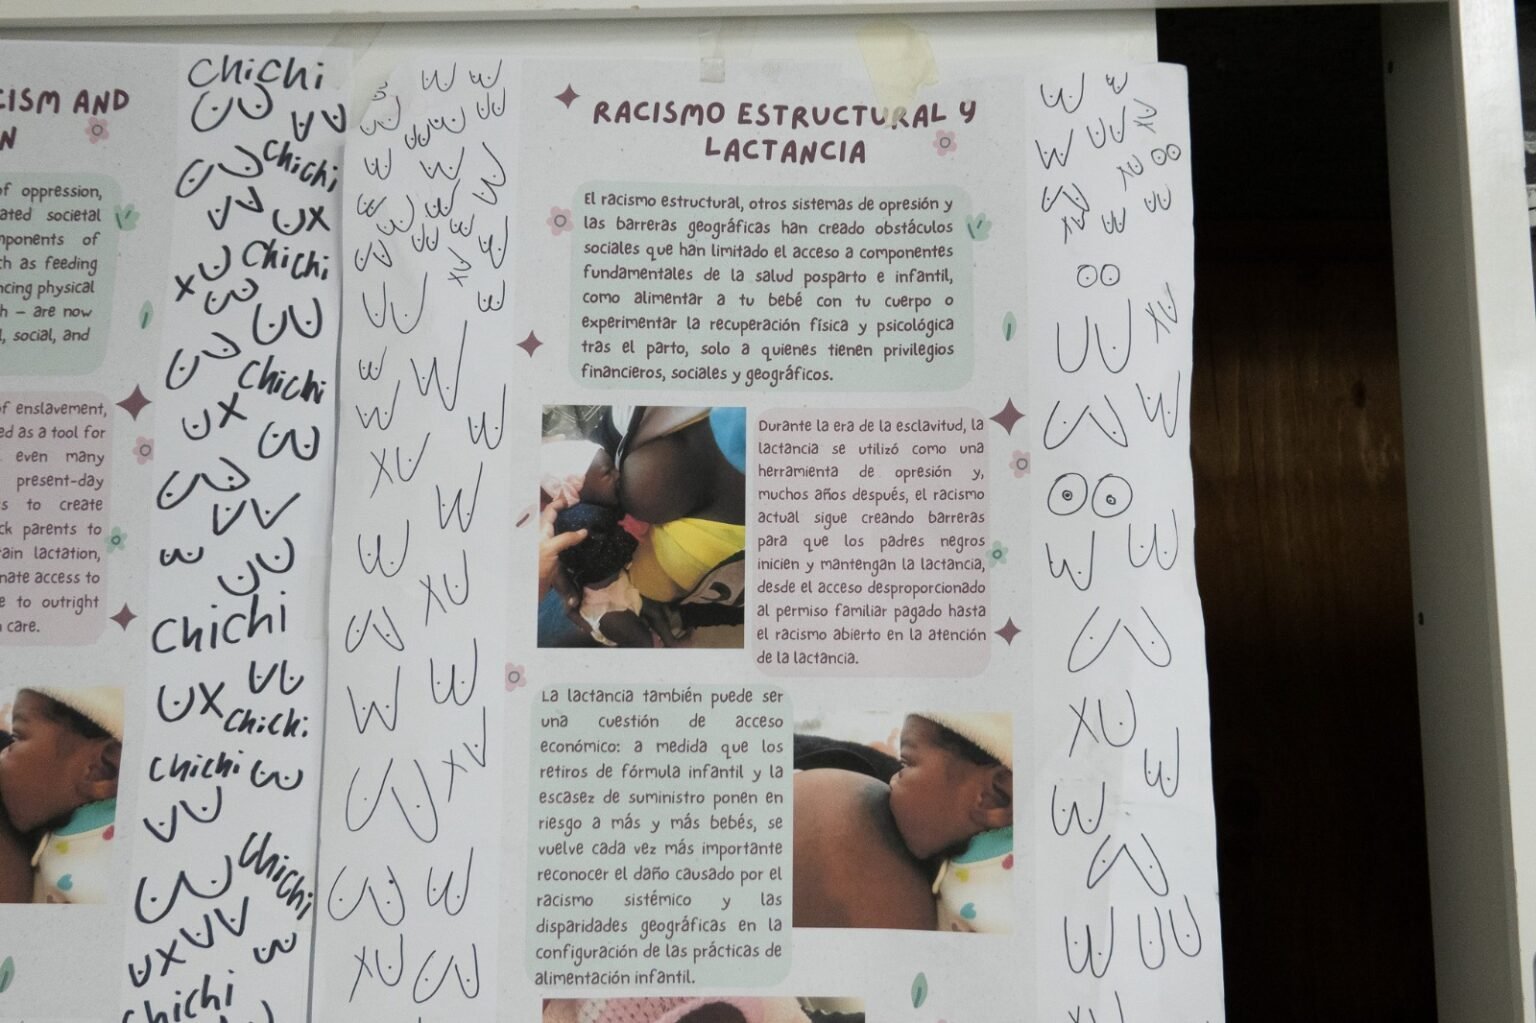 CISM AND
N
of oppression,
ated societal
mponents of
ch as feeding
ncing physical
h – are now
l, social, and
of enslavement,
ed as a tool for
even many
present-day
s to create
ck parents to
ain lactation,
nate access to
e to outright
care.
chichi
chichi
chichi
chichi
chichi
chichi
chichi
chichi
chichi
RACISMO ESTRUCTURAL Y
LACTANCIA
El racismo estructural, otros sistemas de opresión y
las barreras geográficas han creado obstáculos
sociales que han limitado el acceso a componentes
fundamentales de la salud posparto e infantil,
como alimentar a tu bebé con tu cuerpo o
experimentar la recuperación física y psicológica
tras el parto, solo a quienes tienen privilegios
financieros, sociales y geográficos.
Durante la era de la esclavitud, la
lactancia se utilizó como una
herramienta de opresión y,
muchos años después, el racismo
actual sigue creando barreras
para que los padres negros
inicien y mantengan la lactancia,
desde el acceso desproporcionado
al permiso familiar pagado hasta
el racismo abierto en la atención
de la lactancia.
La lactancia también puede ser
una cuestión de acceso
económico: a medida que los
retiros de fórmula infantil y la
escasez de suministro ponen en
riesgo a más y más bebés, se
vuelve cada vez más importante
reconocer el daño causado por el
racismo sistémico y las
disparidades geográficas en la
configuración de las prácticas de
alimentación infantil.